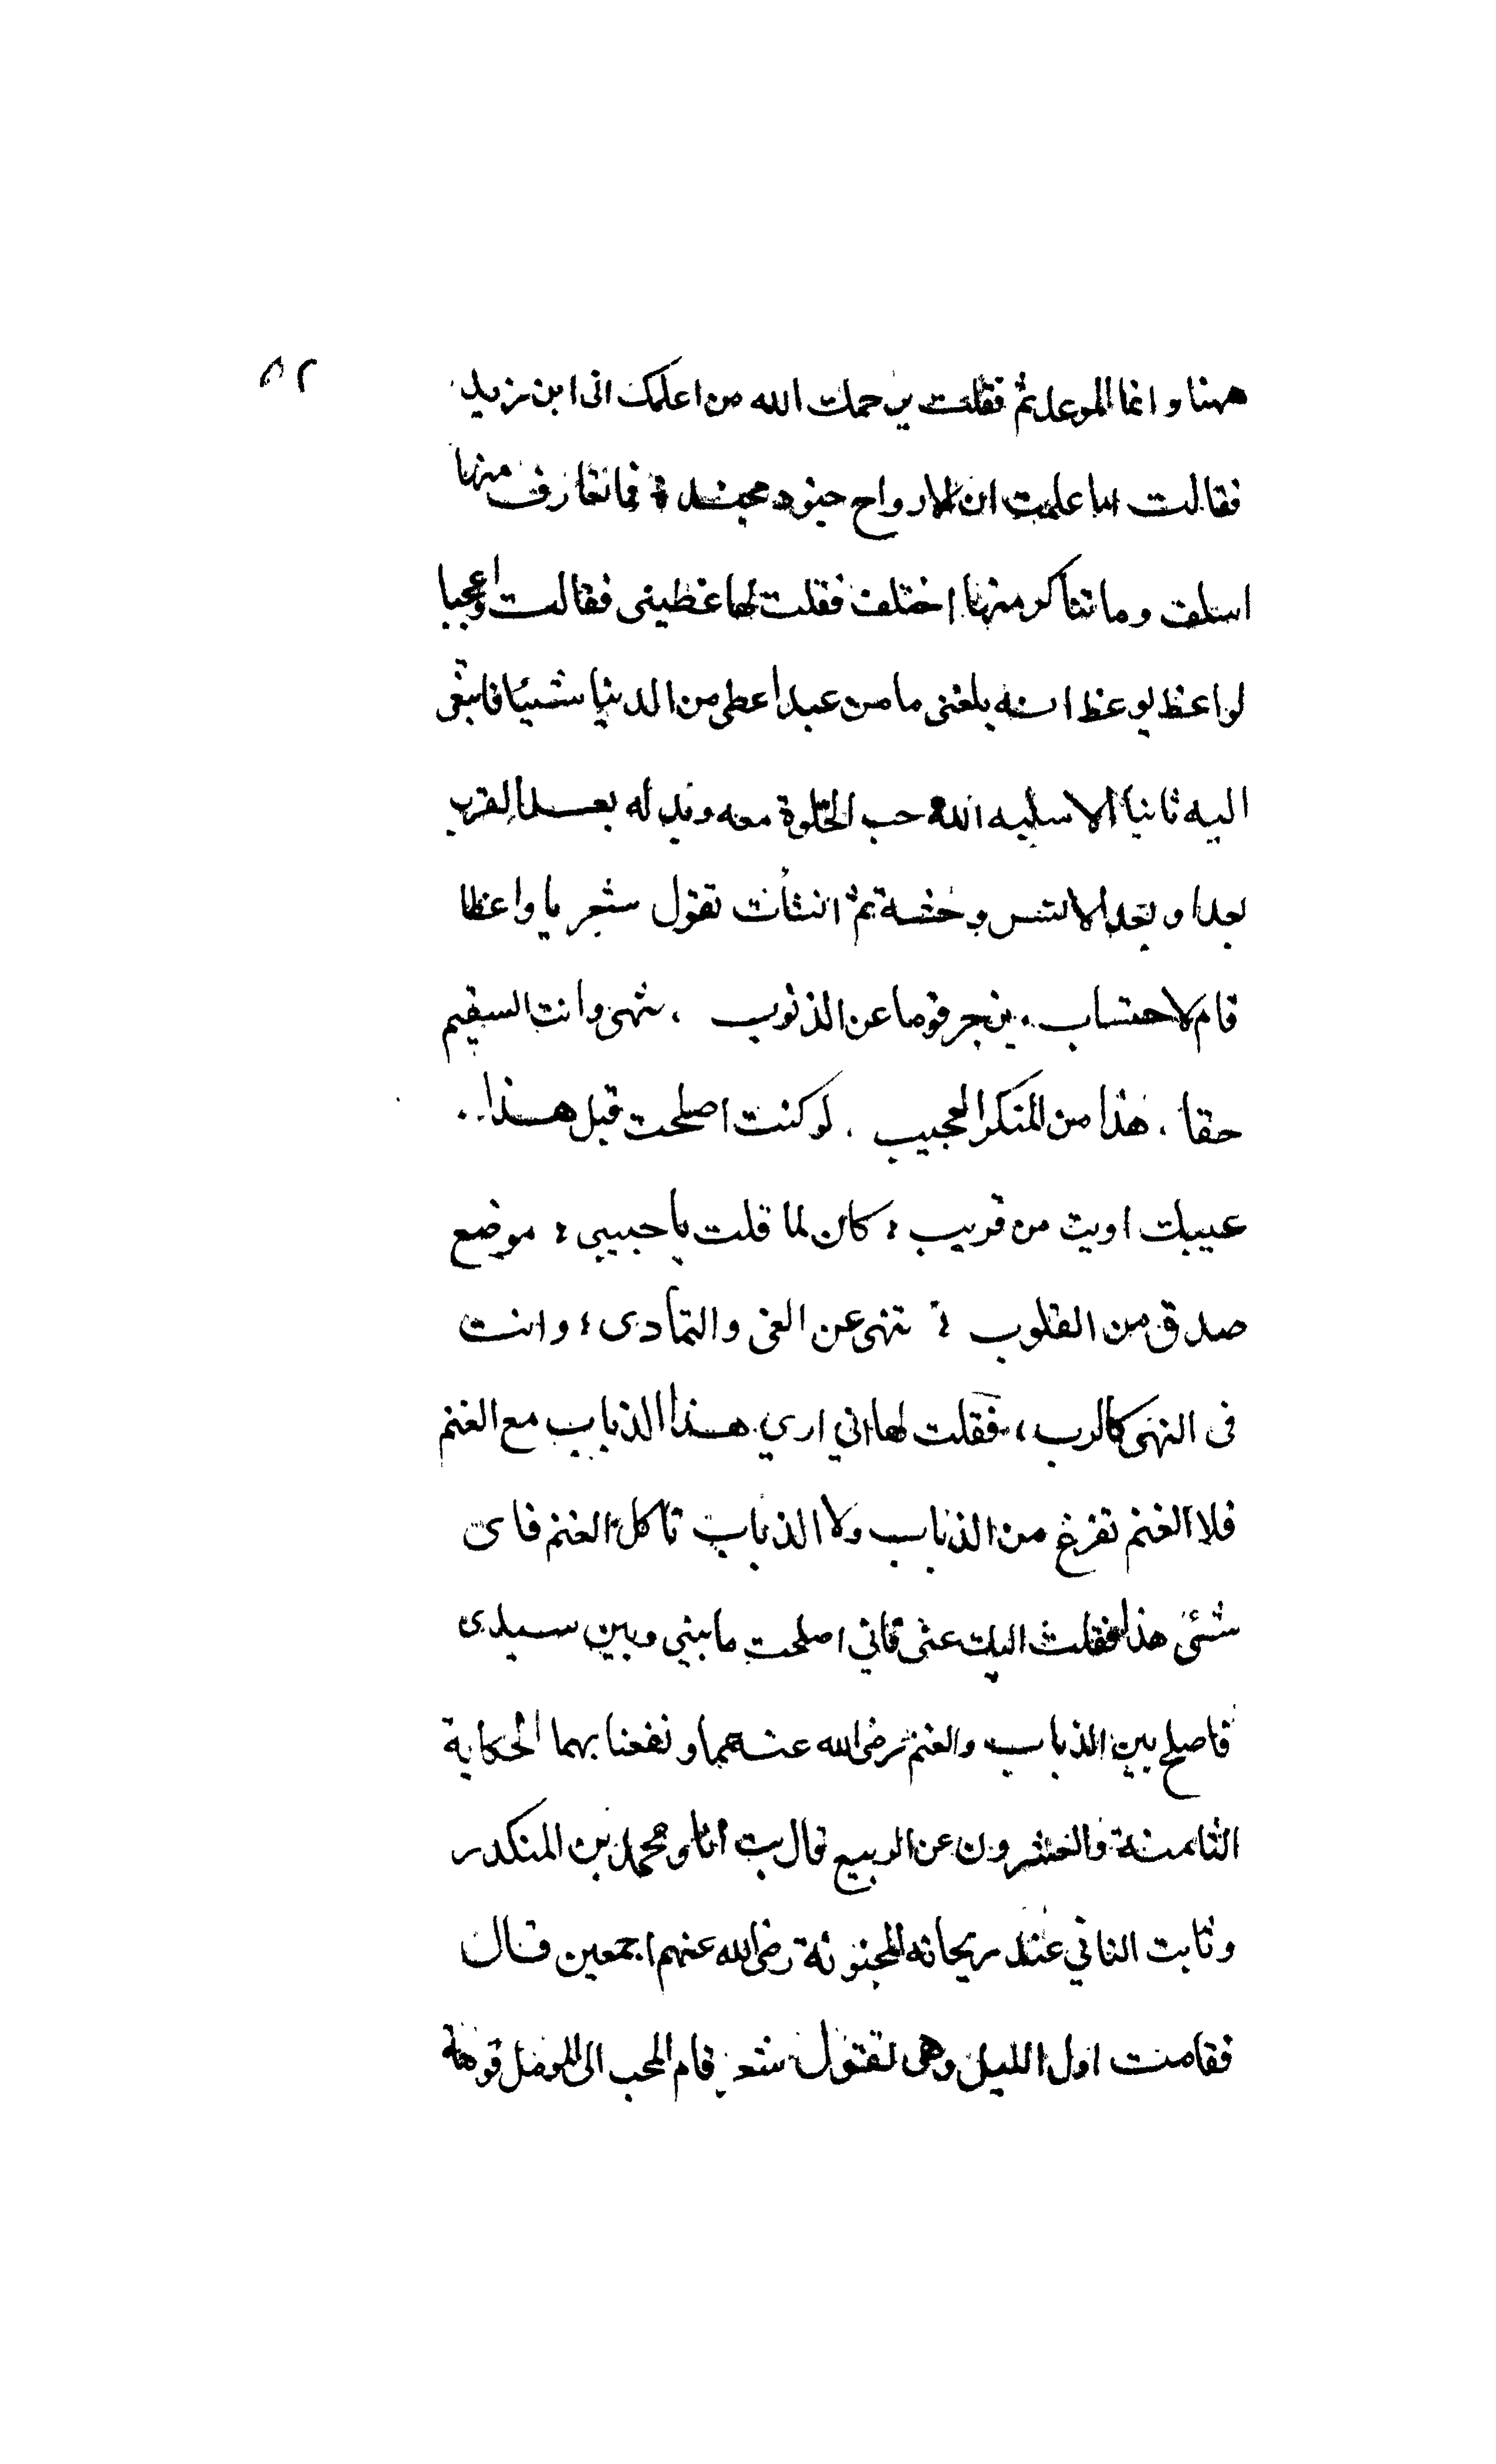 ٥٢
ههنا وانما الموعد ثم فقلت يرحمك الله من اعلمك انى ابن زيد
فقالت اما علمت ان الارواح جنود مجندة فما تعارف منها
ائتلف وما تناكر منها اختلف فقلت لها عظينى فقالت واعجبا
لواعظ يوعظ انه بلغنى ما من عبد اعطى من الدنيا شيئا فابتغى
اليه ثانيا الا سلبه الله حب الخلوة معه وبدله بعد القرب
بعدا وبعد الانس وحشة ثم انشأت تقول شعر يا واعظا
قام لاحتساب . يزجر قوما عن الذنوب . تنهى وانت السقيم
حقا . هذا من المنكر العجيب . لو كنت اصلحت قبل هذا ..
عيبك اويت من قريب ؛ كان لما قلت يا حبيبى ؛ موضع
صدق من القلوب ؛ تنهى عن الغى والتمادى ؛ وانت
فى النهى كالرب ، فقلت لها انى ارى هذا الذياب مع الغنم
فلا الغنم تفزع من الذياب ولا الذياب تاكل الغنم فاى
شئ هذا فقلت اليك عنى فانى اصلحت ما بينى وبين سيدى
فاصلح بين الذياب والغنم رضى الله عنهما ونفعنا بهما الحكاية
الثامنة والعشرون عن الربيع قال بت انا ومحمد بن المنكدر
وثابت النانى عند ريحانه المجنونة رضى الله عنهم اجمعين قال
فقامت اول الليل وهى تقول شعر قام المحب الى المومل قومة